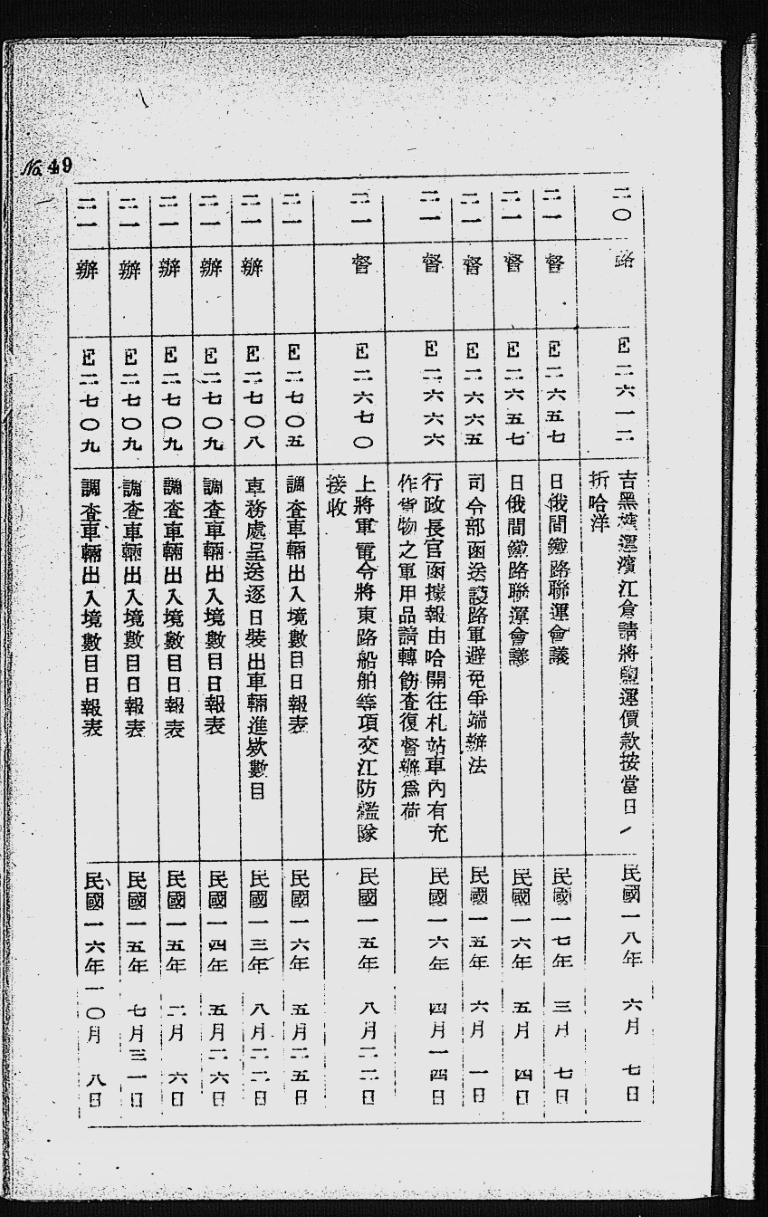 No. 49
二〇 路 E二六一二 吉黑𣙜運濱江倉請將鹽運價款按當日
折哈洋 民國一八年 六月 七日
二一 督 E二六五七 日俄間鐵路聯運會議 民國一七年 三月 七日
二一 督 E二六五七 日俄間鐵路聯運會議 民國一六年 五月 四日
二一 督 E二六六五 司令部函送護路軍避免爭端辦法 民國一五年 六月 一日
二一 督 E二六六六 行政長官函據報由哈開往札站車內有充
作貨物之軍用品請轉飭查復督辦爲荷 民國一六年 四月一四日
二一 督 E二六七〇 上將軍電令將東路船舶等項交江防艦隊
接收 民國一五年 八月二二日
二一 E二七〇五 調查車輛出入境數目日報表 民國一六年 五月二五日
二一 辦 E二七〇八 車務處呈送逐日裝出車輛進款數目 民國一三年 八月二二日
二一 辦 E二七〇九 調查車輛出入境數目日報表 民國一四年 五月二六日
二一 辦 E二七〇九 調查車輛出入境數目日報表 民國一五年 二月 六日
二一 辦 E二七〇九 調查車輛出入境數目日報表 民國一五年 七月三一日
二一 辦 E二七〇九 調查車輛出入境數目日報表 民國一六年一〇月 八日